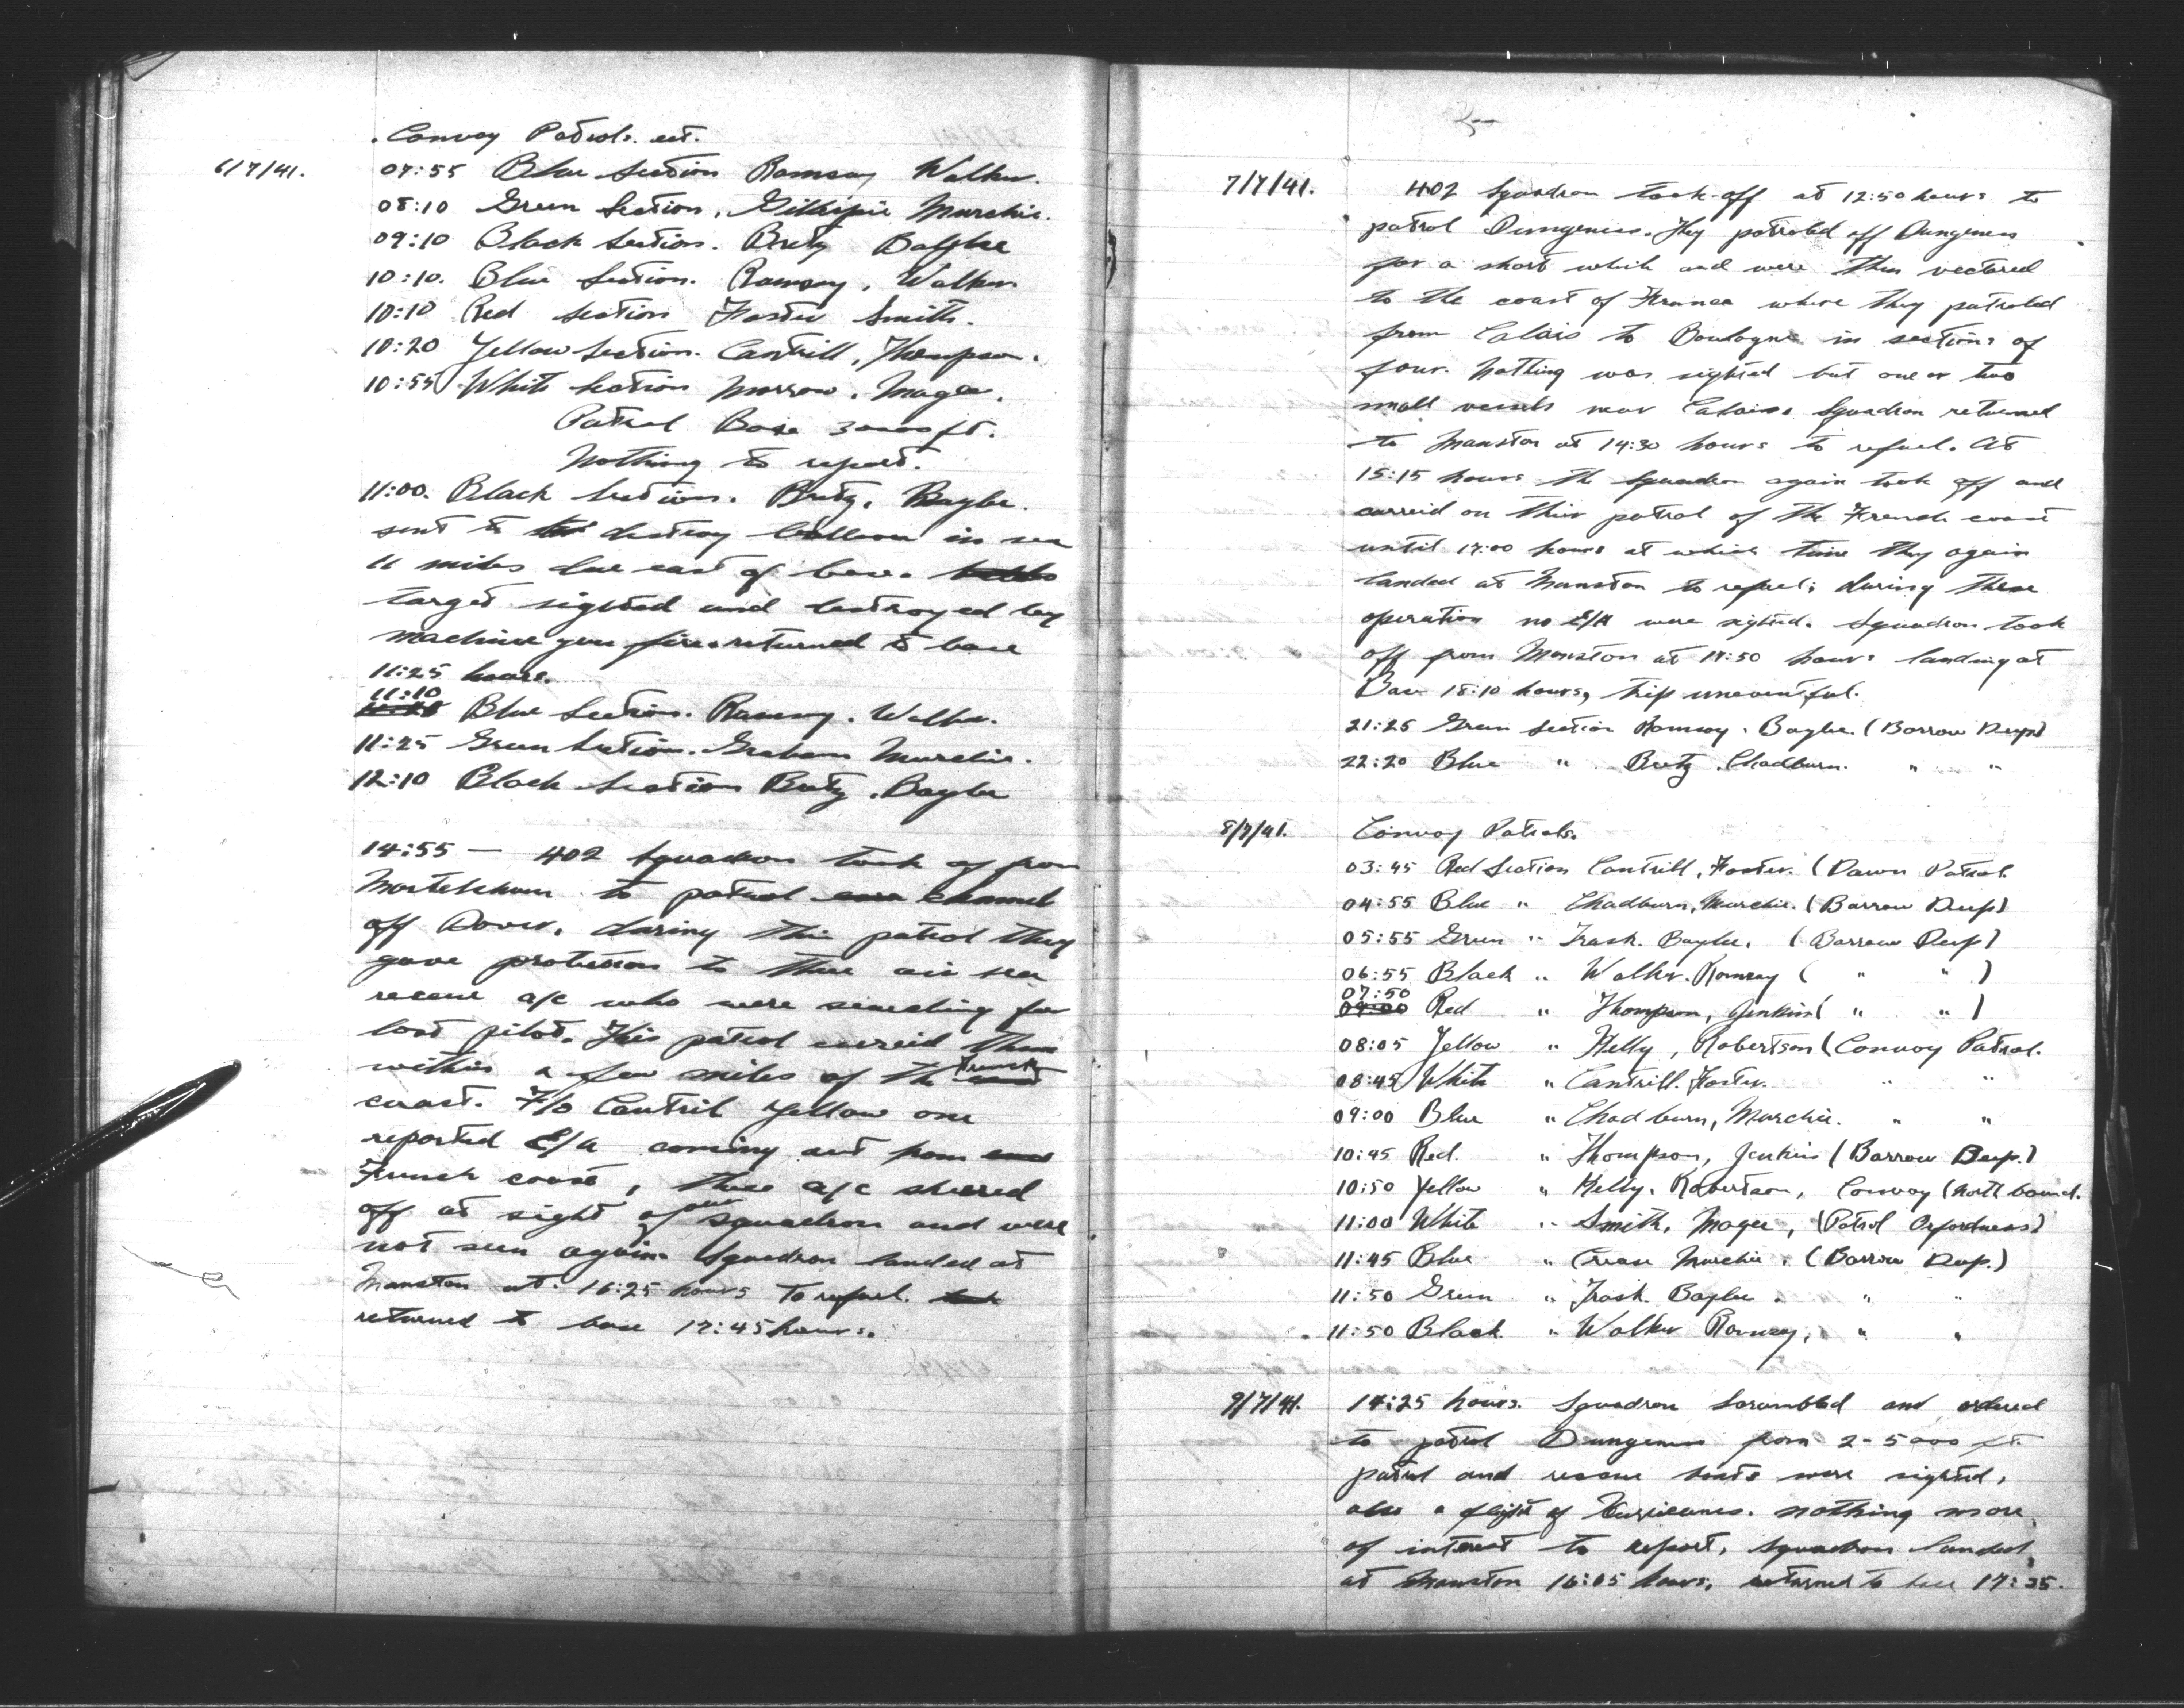 Convoy Patrols. ect.
6/7/41.
07:55 Blue Section Ramsay Walker.
08:10 Green Section, Gillespie Murchie.
09:10 Black Section. Bretz Baylee
10:10. Blue Section. Ramsay, Walker
10:10 Red section Foster Smith.
10:20 Yellow Section. Cantrill, Thompson.
10:55 White Section Morrow. Magee.
Patrol Base 30000 ft.
Nothing to report.
11:00. Black Section. Bretz. Baylee.
sent to destroy balloon in sea
11 miles due east of base.
target sighted and destroyed by
machine gun fire. returned to base
11:25 hours.
11:10
Blue Section. Ramsay. Walker.
11:25 Green Section. Graham Murchie.
12:10 Black Section Bretz. Baylee
14:55 — 402 Squadron took of from
Martelsham to patrol channel
off Dover, during this patrol they
gave protection to three air sea
rescue a/c who were searching for
lost pilot. This patrol carreid them
within a few miles of the French
coast. F/O Cantril Yellow one
reported E/A coming out from
French coast, these a/c sheered
off at sight of our squadron and were
not seen again. Squadron landed at
Manston at. 16:25 hours to refuel.
returned to base 17:45 hours.
7/7/41.
402 Squadron took-off at 12:50 hours to
patrol Dungeness. They patroled off Dungeness
for a short while and were then vectored
to the coast of France where they patroled
from Calais to Boulogne in sections of
four. Nothing was sighted but one or two
small vessels near Calais. Squadron returned
to Manston at 14:30 hours to refuel. At
15:15 hours the Squadron again took off and
carreid on their patrol of the French coast
until 17:00 hours at which time they again
landed at Manston to refuel; during these
operation no E/A were sighted. Squadron took
off from Manston at 17:50 hours landing at
Base 18:10 hours, trip uneventful.
21:25 Green Section Ramsay. Baylee. (Barrow Deep)
22:20 Blue " Bretz. Chadburn. " "
8/7/41.
Convoy Patrols.
03:45 Red Section Cantrill, Foster. (Dawn Patrol.
04:55 Blue " Chadburn, Murchie. (Barrow Deep)
05:55 Green " Trask. Baylee. (Barrow Deep)
06:55 Black " Walker. Ramsay ( " " )
07:50
Red " Thompson, Jenkins ( " " )
08:05 Yellow " Kelly, Robertson (Convoy Patrol.
08:45 White " Cantrill. Foster. " "
09:00 Blue " Chadburn, Murchie. " "
10:45 Red. " Thompson, Jenkins (Barrow Deep.)
10:50 Yellow " Kelly. Robertson, Convoy (North bound.
11:00 White " Smith, Magee, (Patrol Orfordness)
11:45 Blue " Crease Murchie. (Barrow Deep.)
11:50 Green " Trask. Baylee. " "
11:50 Black " Walker Ramsay, " "
9/7/41.
14:25 hours. Squadron scrambled and ordered
to patrol Dungeness from 2-5000 ft.
patrol and rescue boats were sighted,
also a flight of Hurricanes. nothing more
of interest to report, squadron landed
at Manston 16:05 hours, returned to base 17:35.